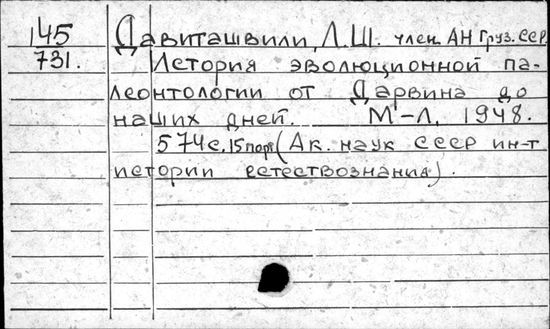 145 Давиташвили, Л.Ш. член АН Груз. ССР
731. История эволюционной па-
леонтологии от Дарвина до
наших дней. М-Л, 1948.
574с. 15 порт (Ак. наук СССР ин-т
истории естествознания).